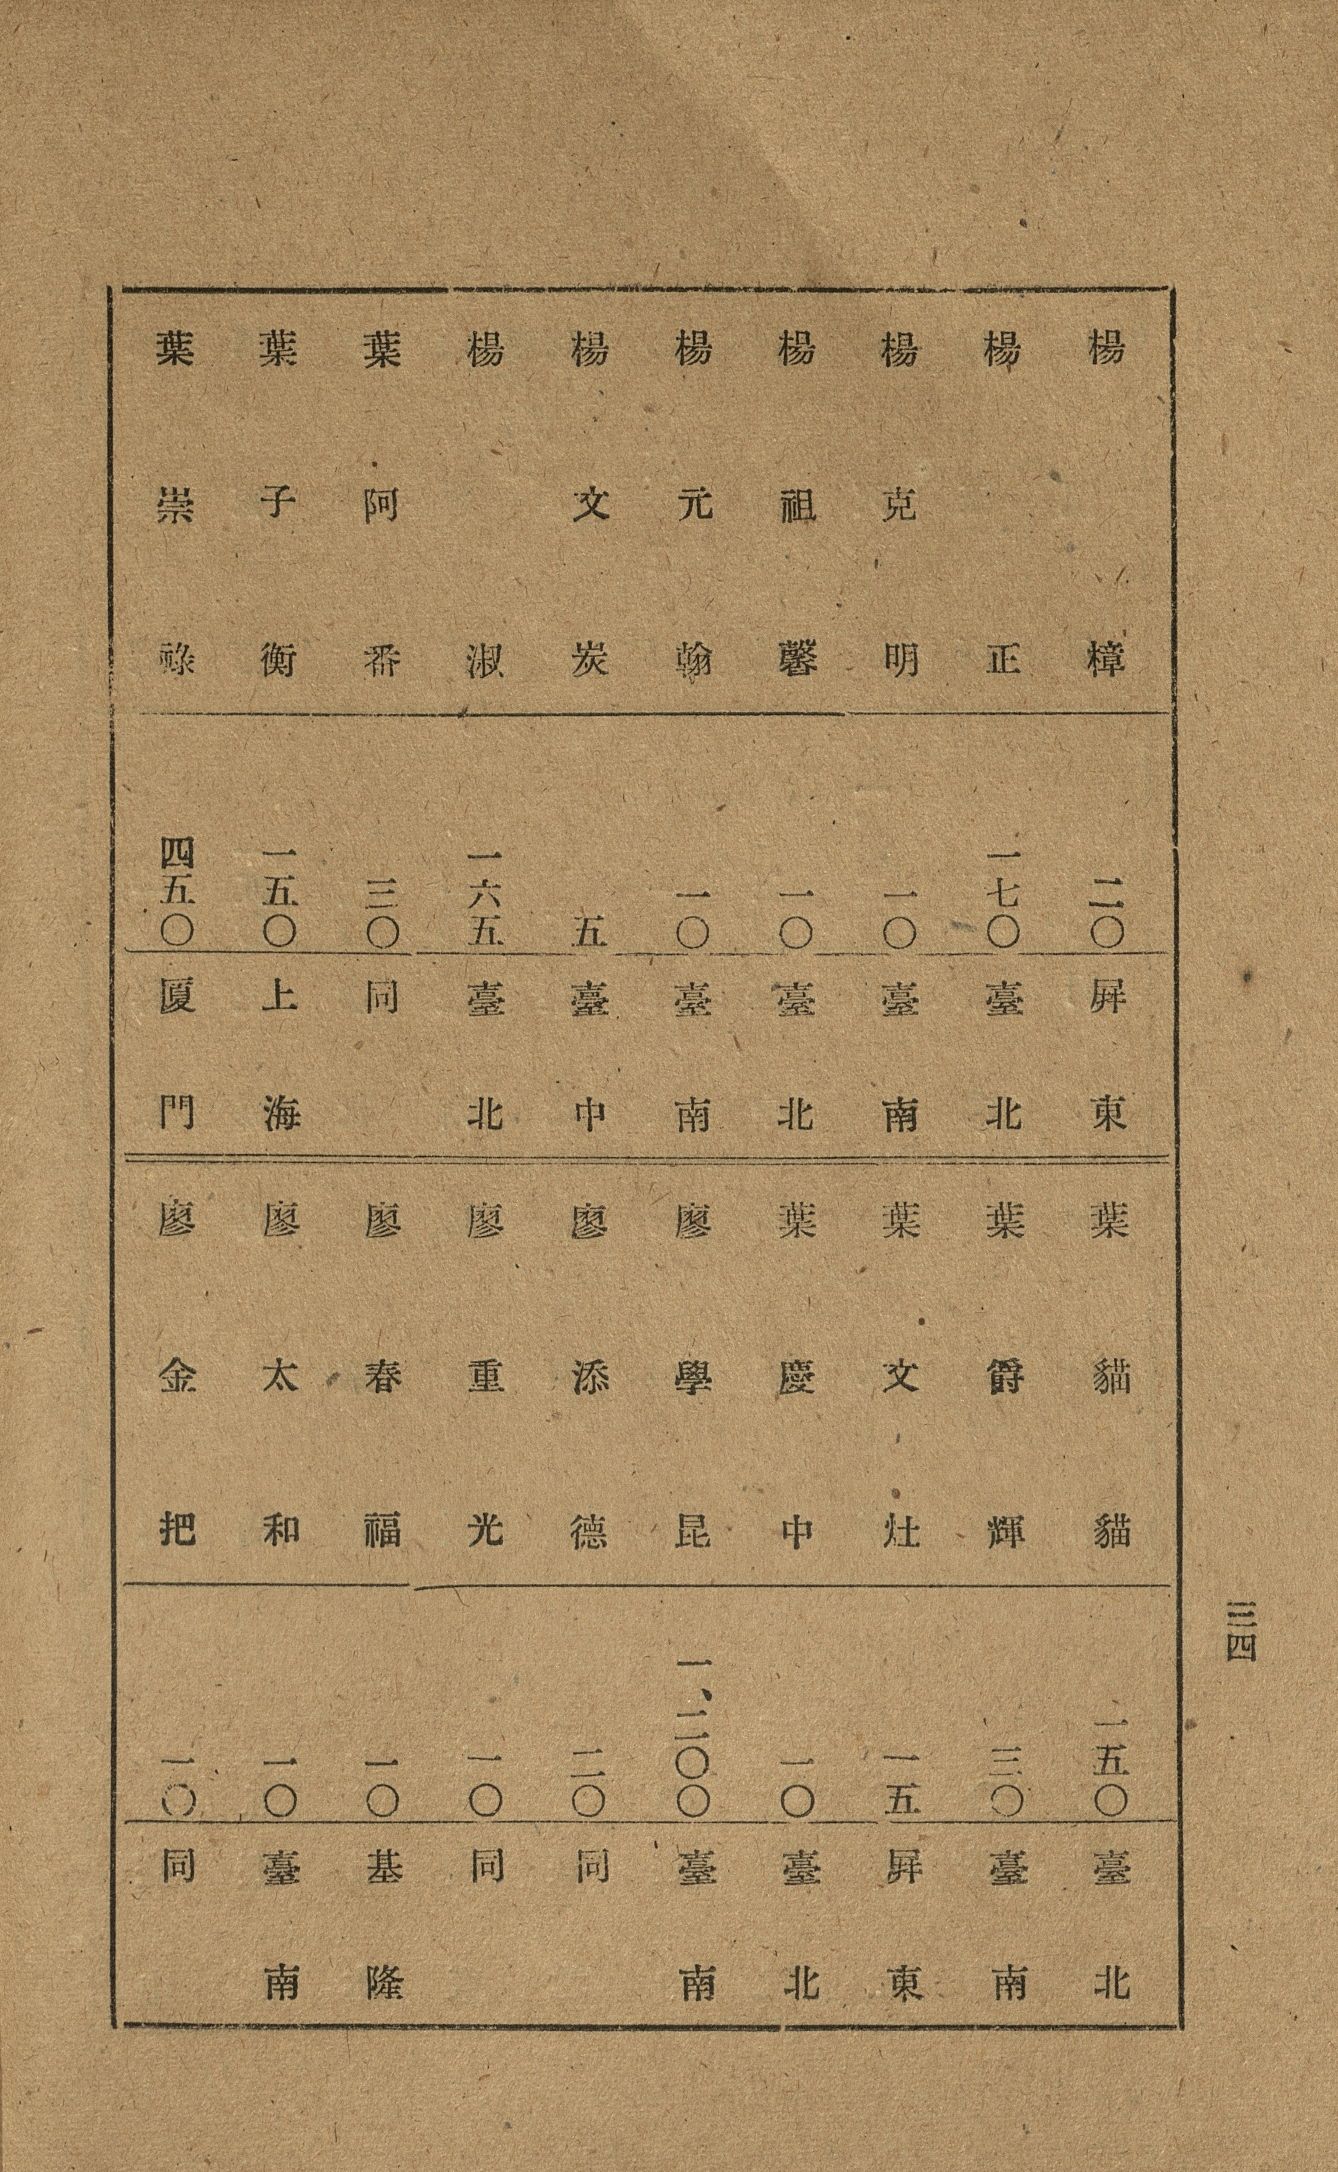 三四
楊樟 二〇 屛東
楊正 一七〇 臺北
楊克明 一〇 臺南
楊祖馨 一〇 臺北
楊元翰 一〇 臺南
楊文炭 五 臺中
楊淑 一六五 臺北
葉阿番 三〇 同
葉子衡 一五〇 上海
葉崇祿 四五〇 厦門
葉貓貓 一五〇 臺北
葉爵輝 三〇 臺南
葉文灶 一五 屛東
葉慶中 一〇 臺北
廖學昆 一、二〇〇 臺南
廖添德 二〇 同
廖重光 一〇 同
廖春福 一〇 基隆
廖太和 一〇 臺南
廖金把 一〇 同